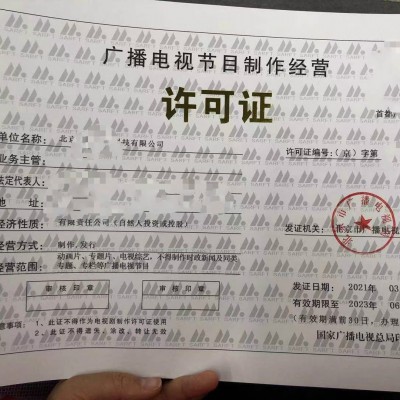 广播电视节目制作经营
许可证
单位名称：
有限公司
许可证编号：（京）字第
业务主管：
法定代表人：
地 址：
经济性质： 有限责任公司（自然人投资或控股）
发证机关：
经营方式： 制作，发行
经营范围： 动画片、专题片、电视综艺，不得制作时政新闻及同类
专题、专栏等广播电视节目
审核印章 审核印章
发证日期： 2021年 03
有效期限至 2023年 06
（有效期满前30日，办理
注意事项： 1、此证不得作为电视剧制作许可证使用
2、此证不得遗失、涂改，转让无效
国家广播电视总局印